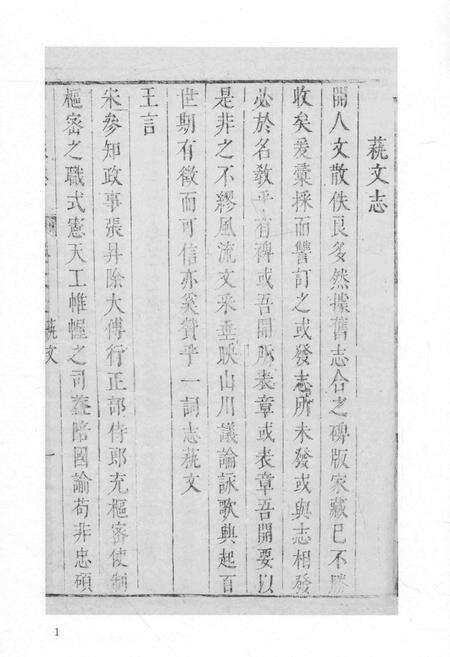 蓺文志
開人文散佚良多然據舊志合之碑版家藏已不勝
收矣爰彙採而讐訂之或發志所未發或與志相發
必於名教乎有裨或吾開所表章或表章吾開要以
是非之不繆風流文采垂映山川議論詠歌與起百
世期有徵而可信亦奚贅乎一詞志蓺文
王言
宋參知政事張昇除大傅行工部侍郎充樞密使制
樞密之職式憲天工帷幄之司葢暗國論苟非忠碩
蓺文
一
1